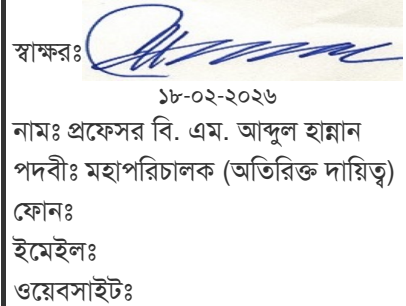 স্বাক্ষরঃ
১৮-০২-২০২৬
নামঃ প্রফেসর বি. এম. আব্দুল হান্নান
পদবীঃ মহাপরিচালক (অতিরিক্ত দায়িত্ব)
ফোনঃ
ইমেইলঃ
ওয়েবসাইটঃ